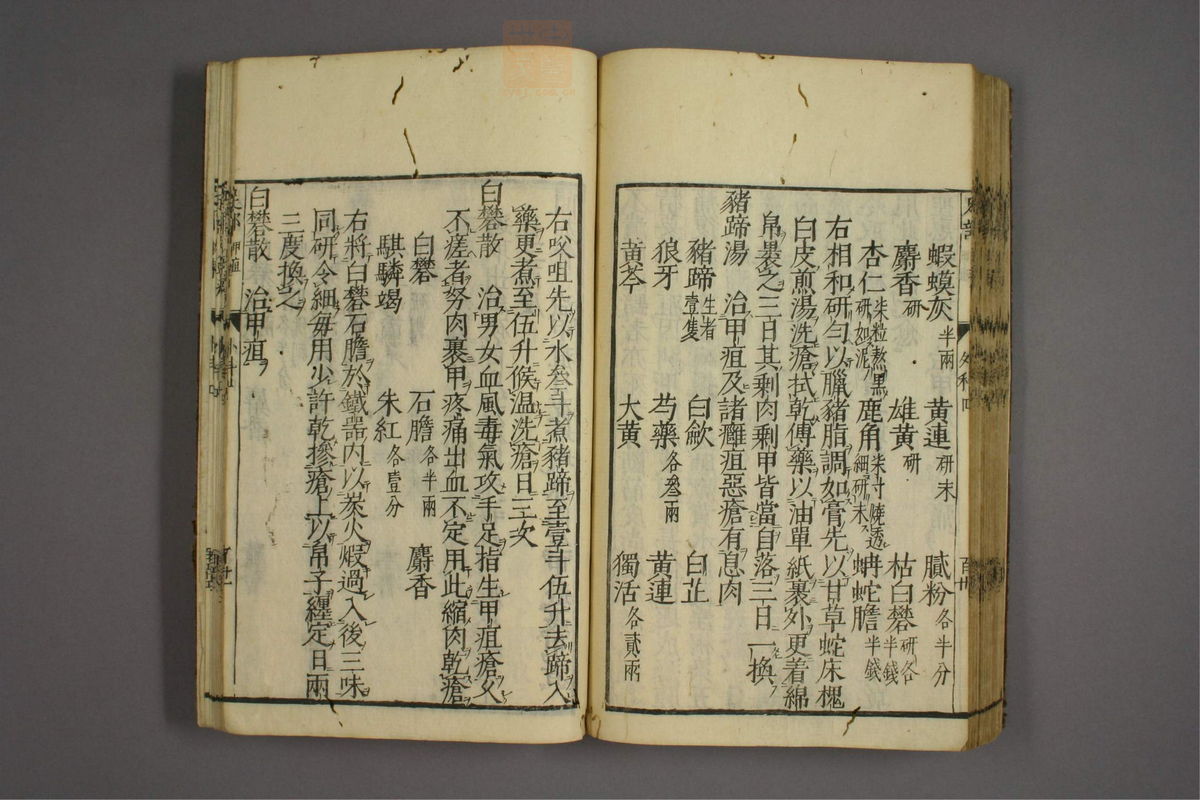 蝦蟆灰半兩 黄連研末 膩粉各半分
麝香研 雄黄研 枯白礬研各半錢
杏仁柒粒熬黒研如泥 鹿角柒寸燒透細研末 蚺蛇膽半錢
右相和研匀以臘豬脂調如膏先以甘草蛇床槐
白皮煎湯洗瘡拭乾傅藥以油單紙裹外更着綿
帛裹之三日其剰肉剰甲皆當自落三日一換
豬蹄湯 治甲疽及諸癰疽惡瘡有息肉
豬蹄生者壹隻 白歛 白芷
狼牙 芍藥各叄兩 黄連
黄芩 大黄 獨活各貳兩
右㕮咀先以水叄斗煮豬蹄至壹斗伍升去蹄入
藥更煮至伍升候温洗瘡日三次
白礬散 治男女血風毒氣攻手足指生甲疽瘡久
不瘥者努肉裹甲疼痛出血不定用此縮肉乾瘡
白礬 石膽各半兩 麝香
騏驎竭 朱紅各壹分
右將白礬石膽於鐵器内以炭火煆過入後三味
同研令細毎用少許乾摻瘡上以帛子纏定日兩
三度換之
白礬散 治甲疽